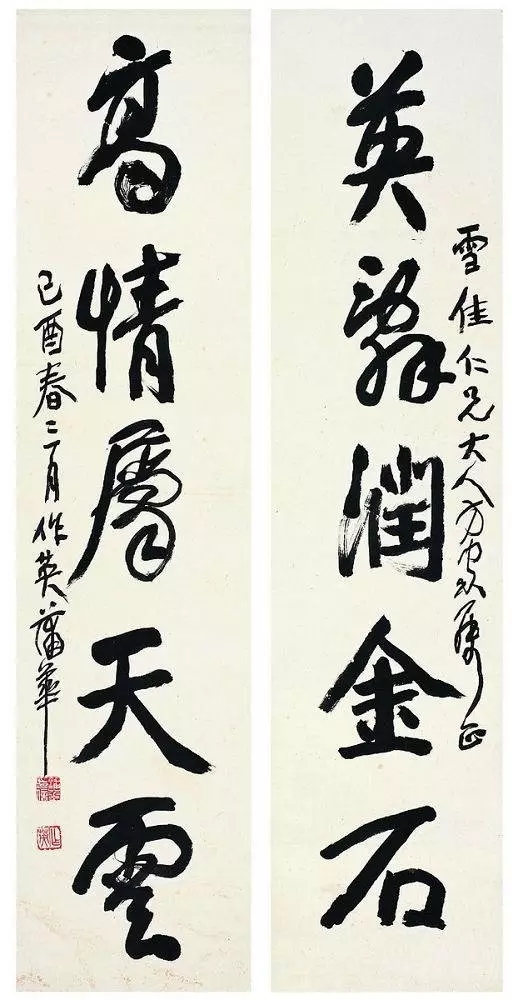 英辭潤金石
雪佳仁兄大人方家屬正
高情屬天雲
己酉春三月作英蒲華